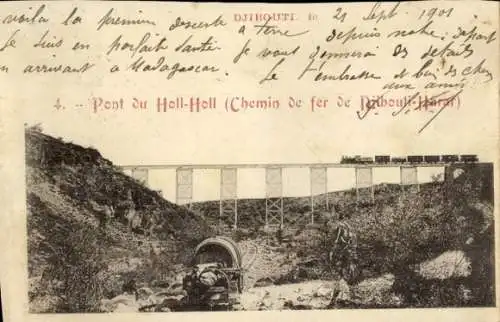 DJIBOUTI, le 21 Sept. 1901
voila la première descente à terre depuis notre départ
Je suis en parfait santé je vous donnerai des détails
en arrivant à Madagascar. Je t'embrasse et bais des choses
aux amis
4. - Pont du Holl-Holl (Chemin de fer de Djibouti-Harar)